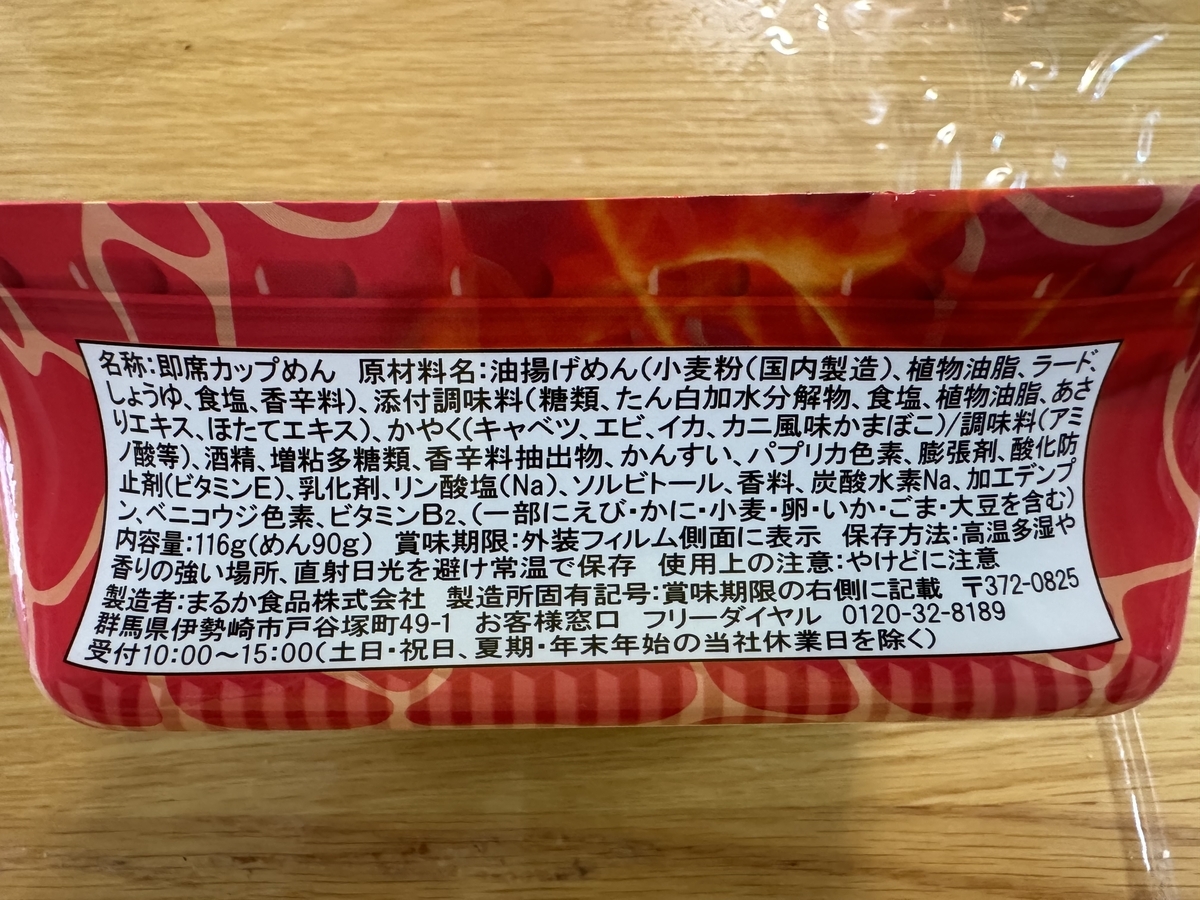 名称:即席カップめん 原材料名:油揚げめん(小麦粉(国内製造)、植物油脂、ラード、
しょうゆ、食塩、香辛料)、添付調味料(糖類、たん白加水分解物、食塩、植物油脂、あさ
りエキス、ほたてエキス)、かやく(キャベツ、エビ、イカ、カニ風味かまぼこ)/調味料(アミ
ノ酸等)、酒精、増粘多糖類、香辛料抽出物、かんすい、パプリカ色素、膨張剤、酸化防
止剤(ビタミンE)、乳化剤、リン酸塩(Na)、ソルビトール、香料、炭酸水素Na、加工デンプ
ン、ベニコウジ色素、ビタミンB2、(一部にえび・かに・小麦・卵・いか・ごま・大豆を含む)
内容量:116g(めん90g) 賞味期限:外装フィルム側面に表示 保存方法:高温多湿や
香りの強い場所、直射日光を避け常温で保存 使用上の注意:やけどに注意
製造者:まるか食品株式会社 製造所固有記号:賞味期限の右側に記載 〒372-0825
群馬県伊勢崎市戸谷塚町49-1 お客様窓口 フリーダイヤル 0120-32-8189
受付10:00〜15:00(土日・祝日、夏期・年末年始の当社休業日を除く)